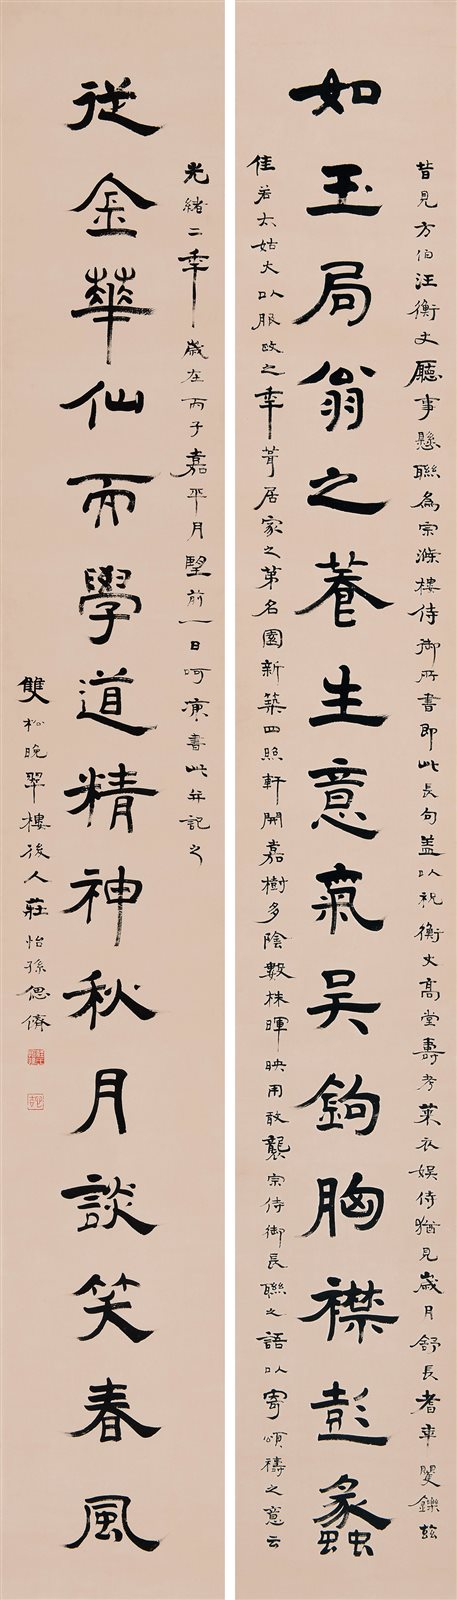 昔見方伯汪衡丈廳事懸聯為宗滌樓侍御所書即此長句蓋以祝衡丈高堂壽考萊衣娛侍猶見歲月舒長耆年矍鑠茲
如玉局翁之養生意氣吳鉤胸襟彭蠡
佳若太姑丈以服政之年葺居家之第名園新築四照軒開嘉樹多陰數株暉映用敢襲宗侍御長聯之語以寄頌禱之意云
光緒二年歲在丙子嘉平月望前一日呵凍書此年記之
從金華仙而學道精神秋月談笑春風
雙松晚翠樓後人莊怡孫偲儕